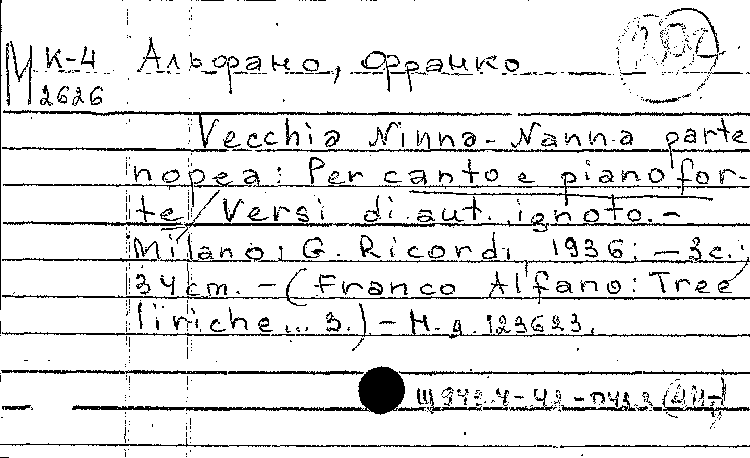 М К-4
2626
Альфано, Франко
Vecchia Ninna-Nanna parte
nopea: Per canto e pianofor-
te / Versi di aut. ignoto.-
Milano: G. Ricordi, 1936. - 3c.;
34cm. - (Franco Alfano: Tree
liriche... 3.) - Н.д. 123623.
Щ943.4-43